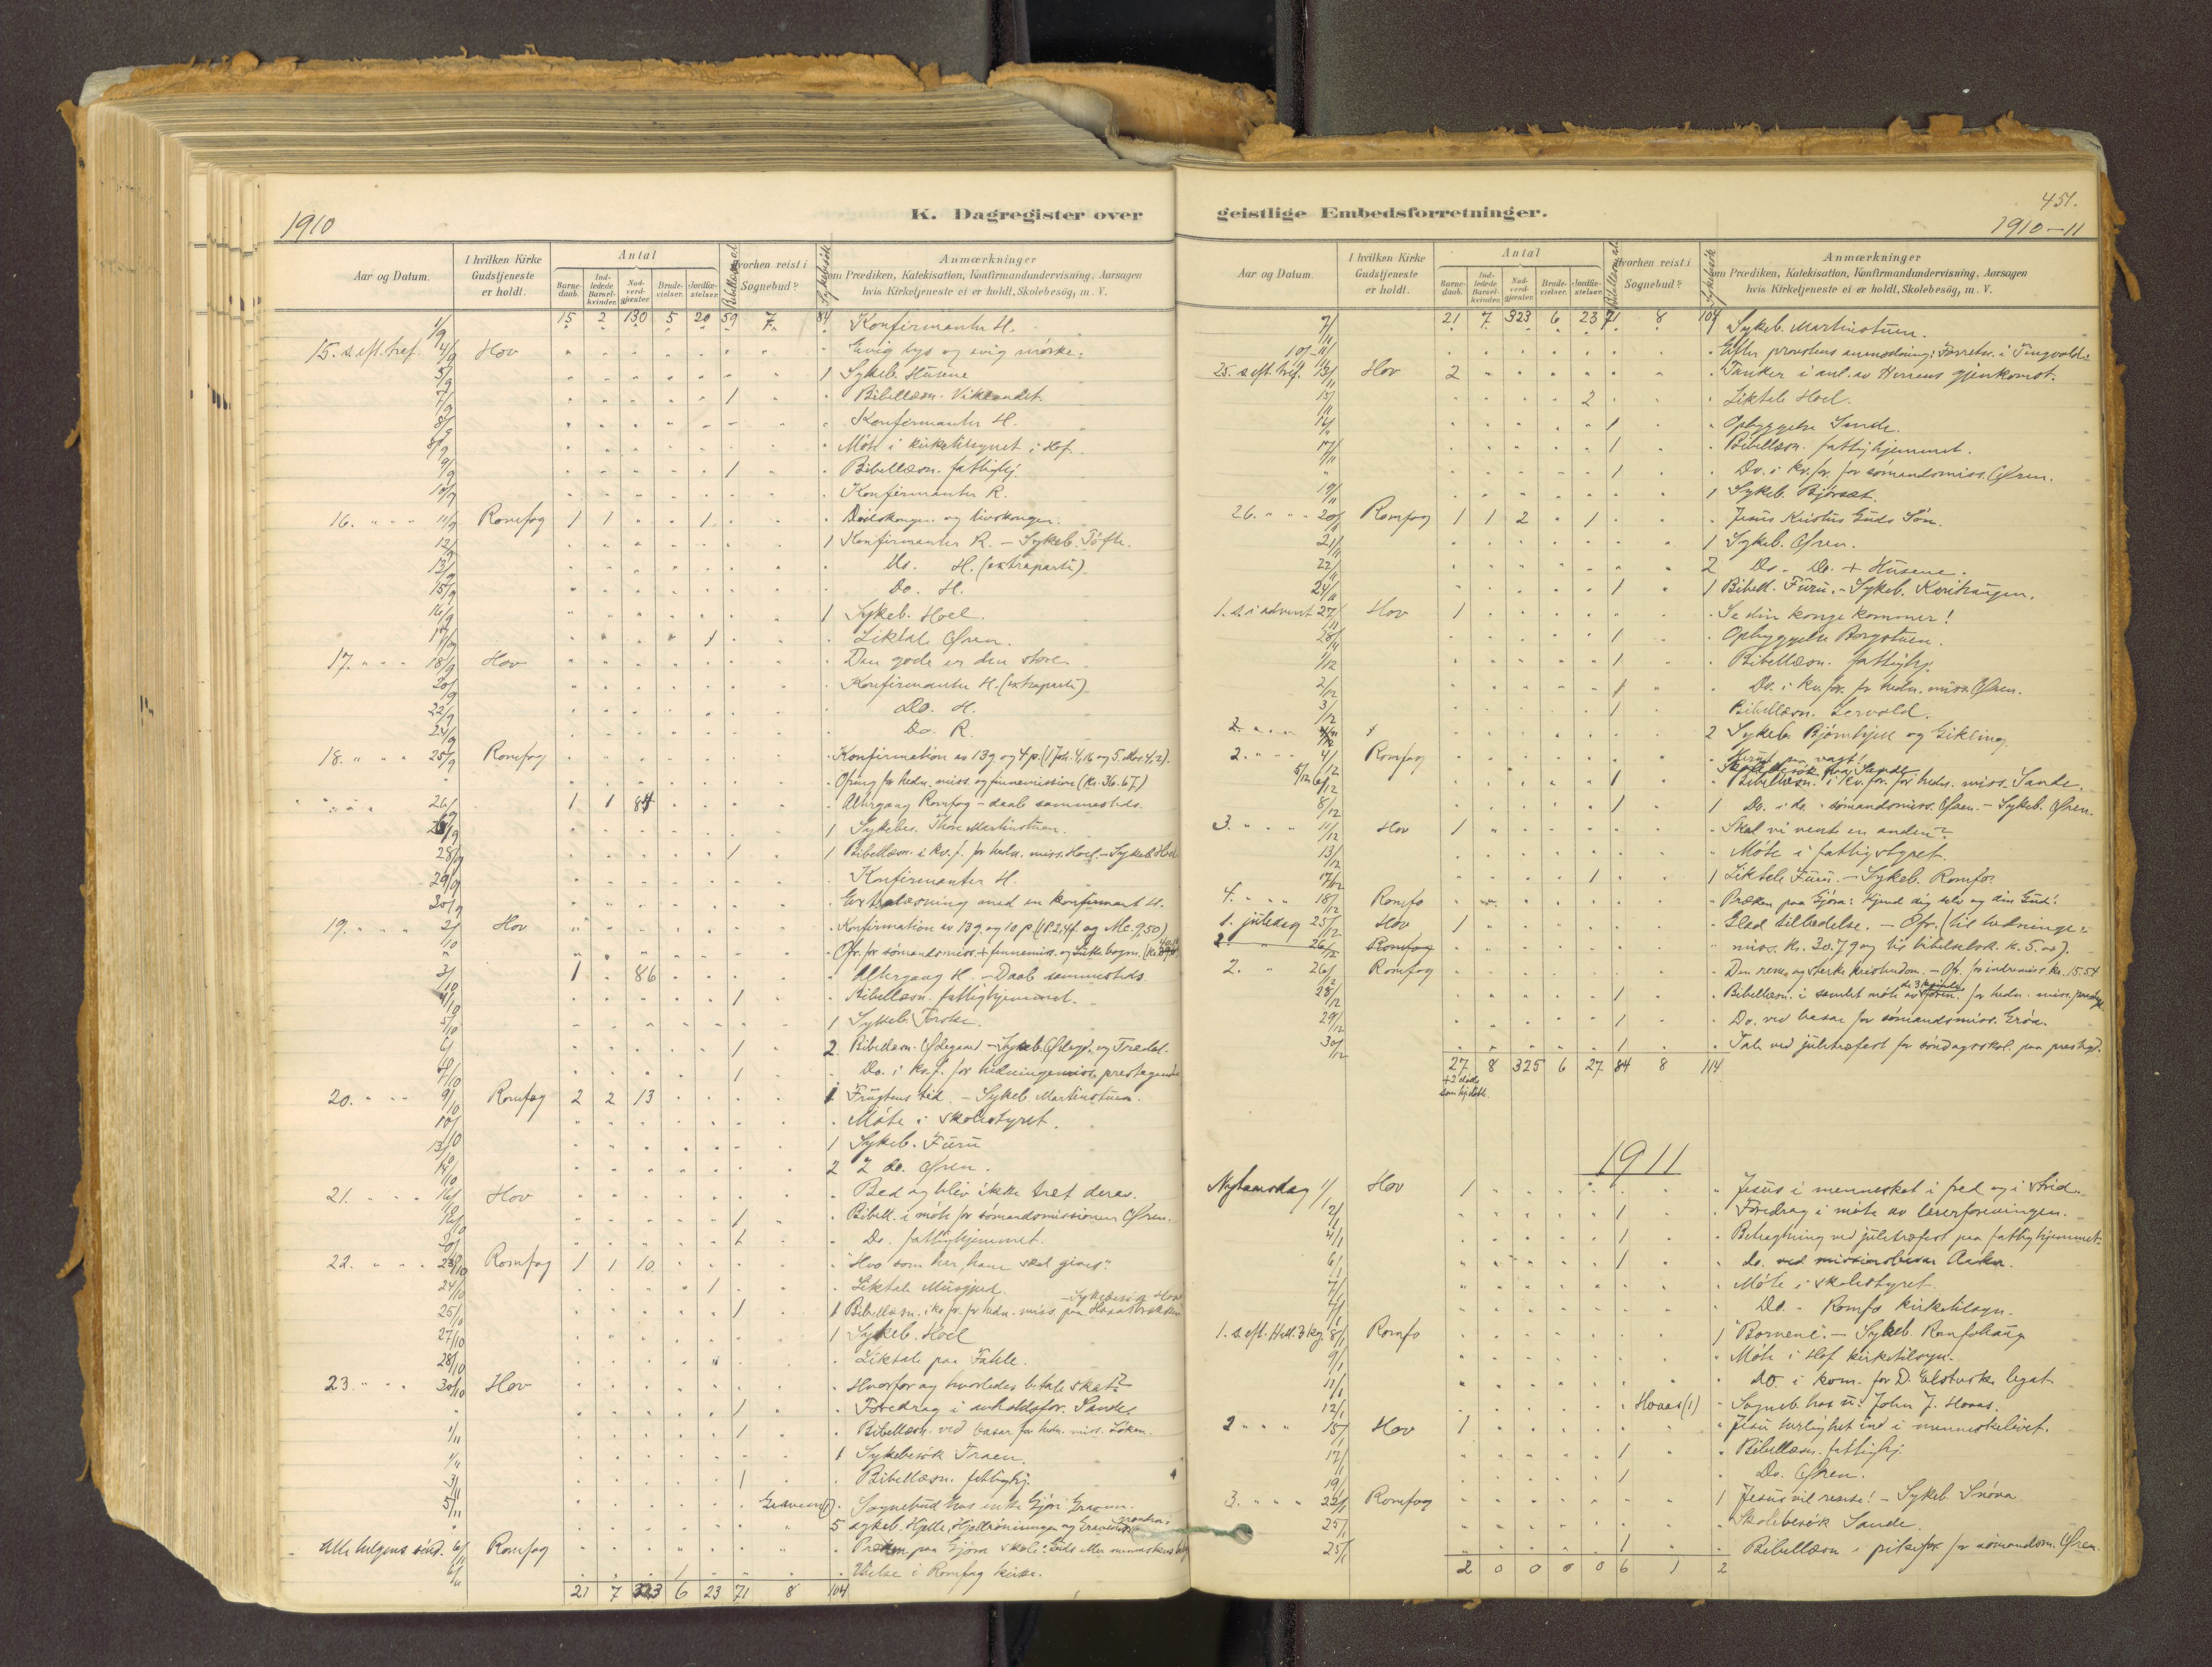 1910
K. Dagregister over
Aar og Datum.
I hvilken Kirke Gudstjeneste er holdt.
Antal
Barne-daab.
Ind-ledede Barsel-kvinder.
Nad-verd-gjæster.
Brude-vielser.
Jordfæ-stelser.
Bibellæsn.
Hvorhen reist i Sognebud?
Sykebesök
Anmærkninger
om Prædiken, Katekisation, Konfirmandundervisning, Aarsagen
hvis Kirketjeneste ei er holdt, Skolebesög, m. V.
15 2 130 5 20 59 7 84
1/9 Konfirmanter H.
15. s. eft. tref. 4/9 Hov Evig lys og evig mörke.
5/9 1 Sykeb. Husene
7/9 1 Bibellæsn. Viklandet.
8/9 Konfirmanter H.
8/9 Möte i kirketilsynet i Hof.
9/9 1 Bibellæsn. fattighj.
10/9 Konfirmanter R.
16. " " " 11/9 Romfog 1 1 1 Dödskongen og livskongen.
12/9 1 Konfirmanter R. – Sykeb. Töfte.
13/9 Do. H. (extraparti)
15/9 Do. H.
16/9 1 Sykeb. Hoel.
17/9 1 Liktale Øren.
17. " " " 18/9 Hov Den gode er den store.
20/9 Konfirmanter H. (extraparti)
22/9 Do. H.
24/9 Do. R.
18. " " " 25/9 Romfog Konfirmation av 13 g. og 4 p. (1 Joh. 4,16 og 5. Mos. 4,2).
" Ofring for hedn. miss. og finnemission (Kr. 36.67)
" " " " 26/9 1 1 84 Altergang Romfog – daab sammesteds.
26/9 1 Sykebes. Thore Martinstuen.
28/9 1 1 Bibellæsn. i kv. f. for hedn. miss. Hoel. – Sykeb. Hoel
29/9 Konfirmanter H.
30/9 Extralæsning med en konfirmant H.
19. " " " 2/10 Hov Konfirmation av 13 g. og 10 p. (1 P. 2,4f. og Mc. 9,50)
" Ofr. for sömandsmiss. + finnemiss. og
3/10 1 86 Altergang H. – Daab sammesteds
4/10 1 Bibellæsn. fattighjemmet.
5/10 1 Sykeb. Torske.
6/10 1 2 Bibellæsn. Ødegaard – Sykeb. Ødegd. og Tredal.
7/10 1 Do. i kv. f. for hedningemiss. prestegaarden
20. " " " 9/10 Romfog 2 2 13 1 Frugtens tid. – Sykeb. Martinstuen.
10/10 Möte i skolestyret.
13/10 1 Sykeb. Furu
14/10 2 2 do. Øren.
21. " " " 16/10 Hov Bed og bliv ikke træt derav.
16/10 1 Bibell. i möte for sömandsmissionen Øren.
20/10 1 Do. fattighjemmet.
22. " " " 23/10 Romfog 1 1 10 "Hvo som har, ham skal gives".
24/10 1 Liktale Musgjerd.
25/10 1 1 Bibellæsn. i kv. for. for hedn. miss. paa – Sykebesök Hov
27/10 1 Sykeb. Hoel
28/10 Liktale paa Fahle.
23. " " " 30/10 Hov Hvorfor og hvorledes betale skat?
" 1 Foredrag i avholdsfor. Sande.
1/11 1 Bibellæsn. ved basar for hedn. miss. Löken.
1/11 1 Sykebesök Traen.
3/11 1 Bibellæsn. fattighj.
5/11 Gravem (1) Sognebud hos enke Gjöri Gravem.
" 5 Sykeb. Hjelle, og Gravem
Alle helgens sönd. 6/11 Romfog Præken paa Gjöra skole: Guds eller menneskens
6/11 1 Vielse i Romfog kirke.
21 7 323 6 23 71 8 104
geistlige Embedsforretninger.
451.
1910–11
Aar og Datum.
I hvilken Kirke Gudstjeneste er holdt.
Antal
Barne-daab.
Ind-ledede Barsel-kvinder.
Nad-verd-gjæster.
Brude-vielser.
Jordfæ-stelser.
Bibellæsn.
Hvorhen reist i Sognebud?
Sykebesök
Anmærkninger
om Prædiken, Katekisation, Konfirmandundervisning, Aarsagen
hvis Kirketjeneste ei er holdt, Skolebesög, m. V.
21 7 323 6 23 71 8 104
7/11 Sykeb. Martinstuen.
10/–11/11 Efter provstens anmodning: Forretn. i Tingvold.
25. s. eft. tref. 13/11 Hov 2 Tanker i anl. av Herrens gjenkomst.
15/11 2 Liktale Hoel.
16/11 1 Opbyggelse Sande.
17/11 1 Bibellæsn. fattighjemmet.
" 1 Do. i kv. for. for sömandsmiss. Øren.
19/11 1 Sykeb. Björsæt.
26. " " " 20/11 Romfog 1 1 2 1 Jesus Kristus Guds Sön.
21/11 1 Sykeb. Øren.
22/11 2 Do. Do. + Husene.
24/11 1 1 Bibell. Furu. – Sykeb. Karihaugen.
1. s. i advent 27/11 Hov 1 Se din konge kommer!
28/11 1 Opbyggelse Borgstuen.
1/12 1 Bibellæsn. fattighj.
2/12 1 Do. i kv. for. for hedn. miss. Øren.
3/12 1 Bibellæsn. Lervold.
2. " " " 4/12 2 Sykeb. Björnhjell og Gikling.
2. " " " 4/12 Romfog
5/12 6/12 Bibellæsn. i kv. for. for hedn. miss. Sande.
8/12 1 1 Do. i do. sömandsmiss. Øren. – Sykeb. Øren.
3. " " " 11/12 Hov 1 Skal vi vente en anden?
13/12 Möte i fattigstyret.
17/12 1 1 Liktale Furu. – Sykeb. Romfo.
4. " " " 18/12 Romfo Præken paa Gjöra: Kjend dig selv og din Gud!
1. juledag 25/12 Hov 1 Glad tilbedelse. – Ofr. (til hedninge-
2. " 26/12 Romfog miss. kr. 30.79 og til bibelselsk. kr. 5.00).
2. " 26/12 Romfog Den rene og sterke kristendom. – Ofr. for indremiss. kr. 15.54
28/12 1 Bibellæsn. i samlet möte av de 3 for hedn. miss. prestegd.
29/12 1 Do. ved basar for sömandsmiss. Gröa.
30/12 1 Tale ved juletræfest for söndagsskol. paa prestegd.
27 8 325 6 27 84 8 114
+ 2 döde
som hj.döbt.
1911
Nytaarsdag 1/1 Hov 1 Jesus i mennesket i fred og i strid.
2/1 1 Foredrag i möte av lærerforeningen.
4/1 1 Betragtning ved juletræfest paa fattighjemmet
6/1 1 do. ved missionsbasar Aaker.
7/1 Möte i skolestyret.
7/1 Do. " Romfo kirketilsyn.
1. s. eft. Hell. 3 kg. 8/1 Romfo 1 "Barnene". – Sykeb. Romfohaug
9/1 Möte i Hof kirketilsyn.
11/1 Do. i kom. for D. legat
12/1 Hovas (1) Sogneb. hos u. John J. Hovas.
2 " " " 15/1 Hov 1 Jesu herlighet ind i menneskelivet.
17/1 1 Bibellæsn. fattighj.
19/1 1 Do. Øren.
3. " " " 22/1 Romfog 1 Jesus vil rense! – Sykeb. Snöva
25/1 Skolebesök Sande.
25/1 1 Bibellæsn i pikefor. for sömandsm. Øren.
2 0 0 0 0 6 1 2